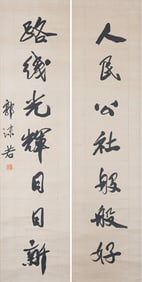 人民公社般般好
路线光辉日日新
郭沫若